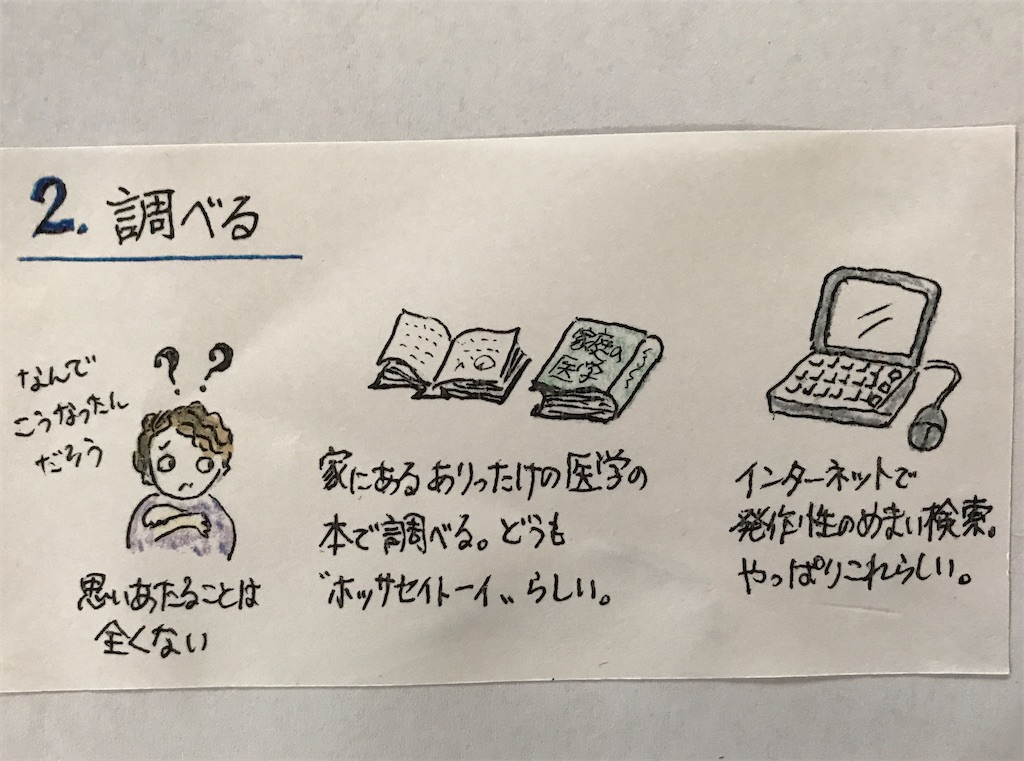 2. 調べる
なんで
こうなったん
だろう
? ?
思いあたることは
全くない
家庭の
医学
家にあるありったけの医学の
本で調べる。どうも
〝ホッサセイトーイ〟らしい。
インターネットで
発作性のめまい検索。
やっぱりこれらしい。